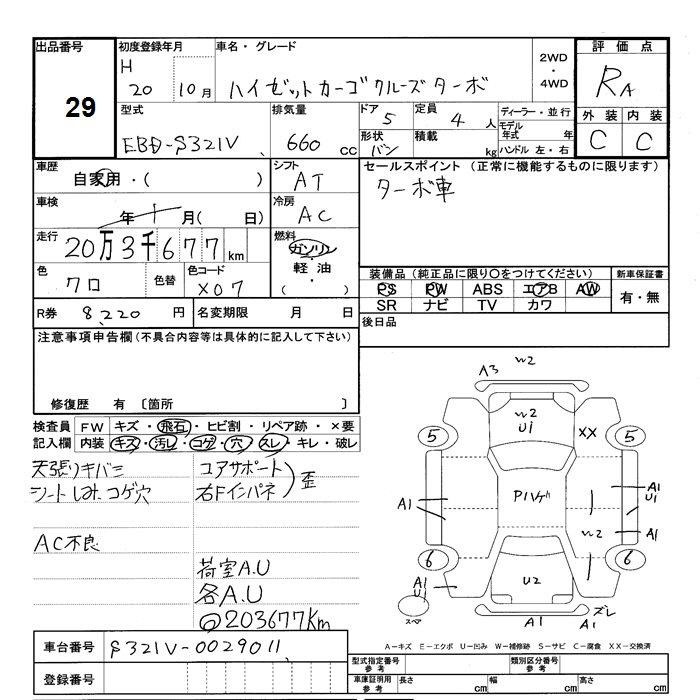 出品番号 初度登録年月 車名・グレード 評価点
29
H 20 10月 ハイゼットカーゴ クルーズ ターボ 2WD・4WD RA
型式 排気量 ドア 定員 ディーラー・並行 外装 内装
EBD-S321V 660 cc 5 4人 モデル年式 年 C C
形状 バン 積載 kg ハンドル 左・右
車歴 シフト セールスポイント (正常に機能するものに限ります)
自家用・( ) AT ターボ車
車検 冷房
年 1 月( 日) AC
走行 燃料
20万3千677km ガソリン・軽油・( )
色 色替 色コード 装備品 (純正品に限り○をつけてください) 新車保証書
クロ X07 PS PW ABS エアB AW 有・無
SR ナビ TV カワ
R券 8,220 円 名変期限 月 日 後日品
注意事項申告欄 (不具合内容等は具体的に記入して下さい)
修復歴 有 〔箇所 〕
検査員 FW キズ・飛石・ヒビ割・リペア跡・×要
記入欄 内装 キズ・汚レ・コゲ・穴・スレ・キレ・破レ
天張りキバミ コアサポート 歪
シートしみ、コゲ穴 右Fインパネ
AC不良
荷室A.U
各A.U
@203677Km
A3 W2
W2
U1
XX
5 5
A1 P1 A1
U1
W2 A1
6 6
A1 U1 U2
A1 A1 ズレ
スペア
A-キズ E-エクボ U-凹み W-補修跡 S-サビ C-腐食 XX-交換済
車台番号 S321V-0029011
登録番号
型式指定番号 参考 類別区分番号 参考
車庫証明用 参考 長さ cm 幅 cm 高さ cm